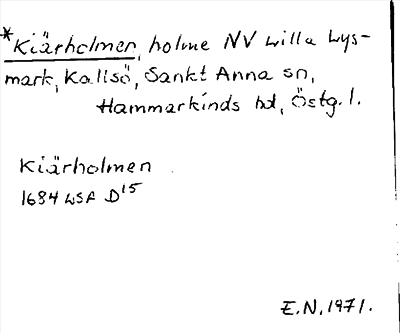 *Kiärholmen, holme NV Lilla Lys-
mark, Kallsö, Sankt Anna sn,
Hammarkinds hd, Östg. l.
Kiärholmen
1684 LSA D15
E.N. 1971.